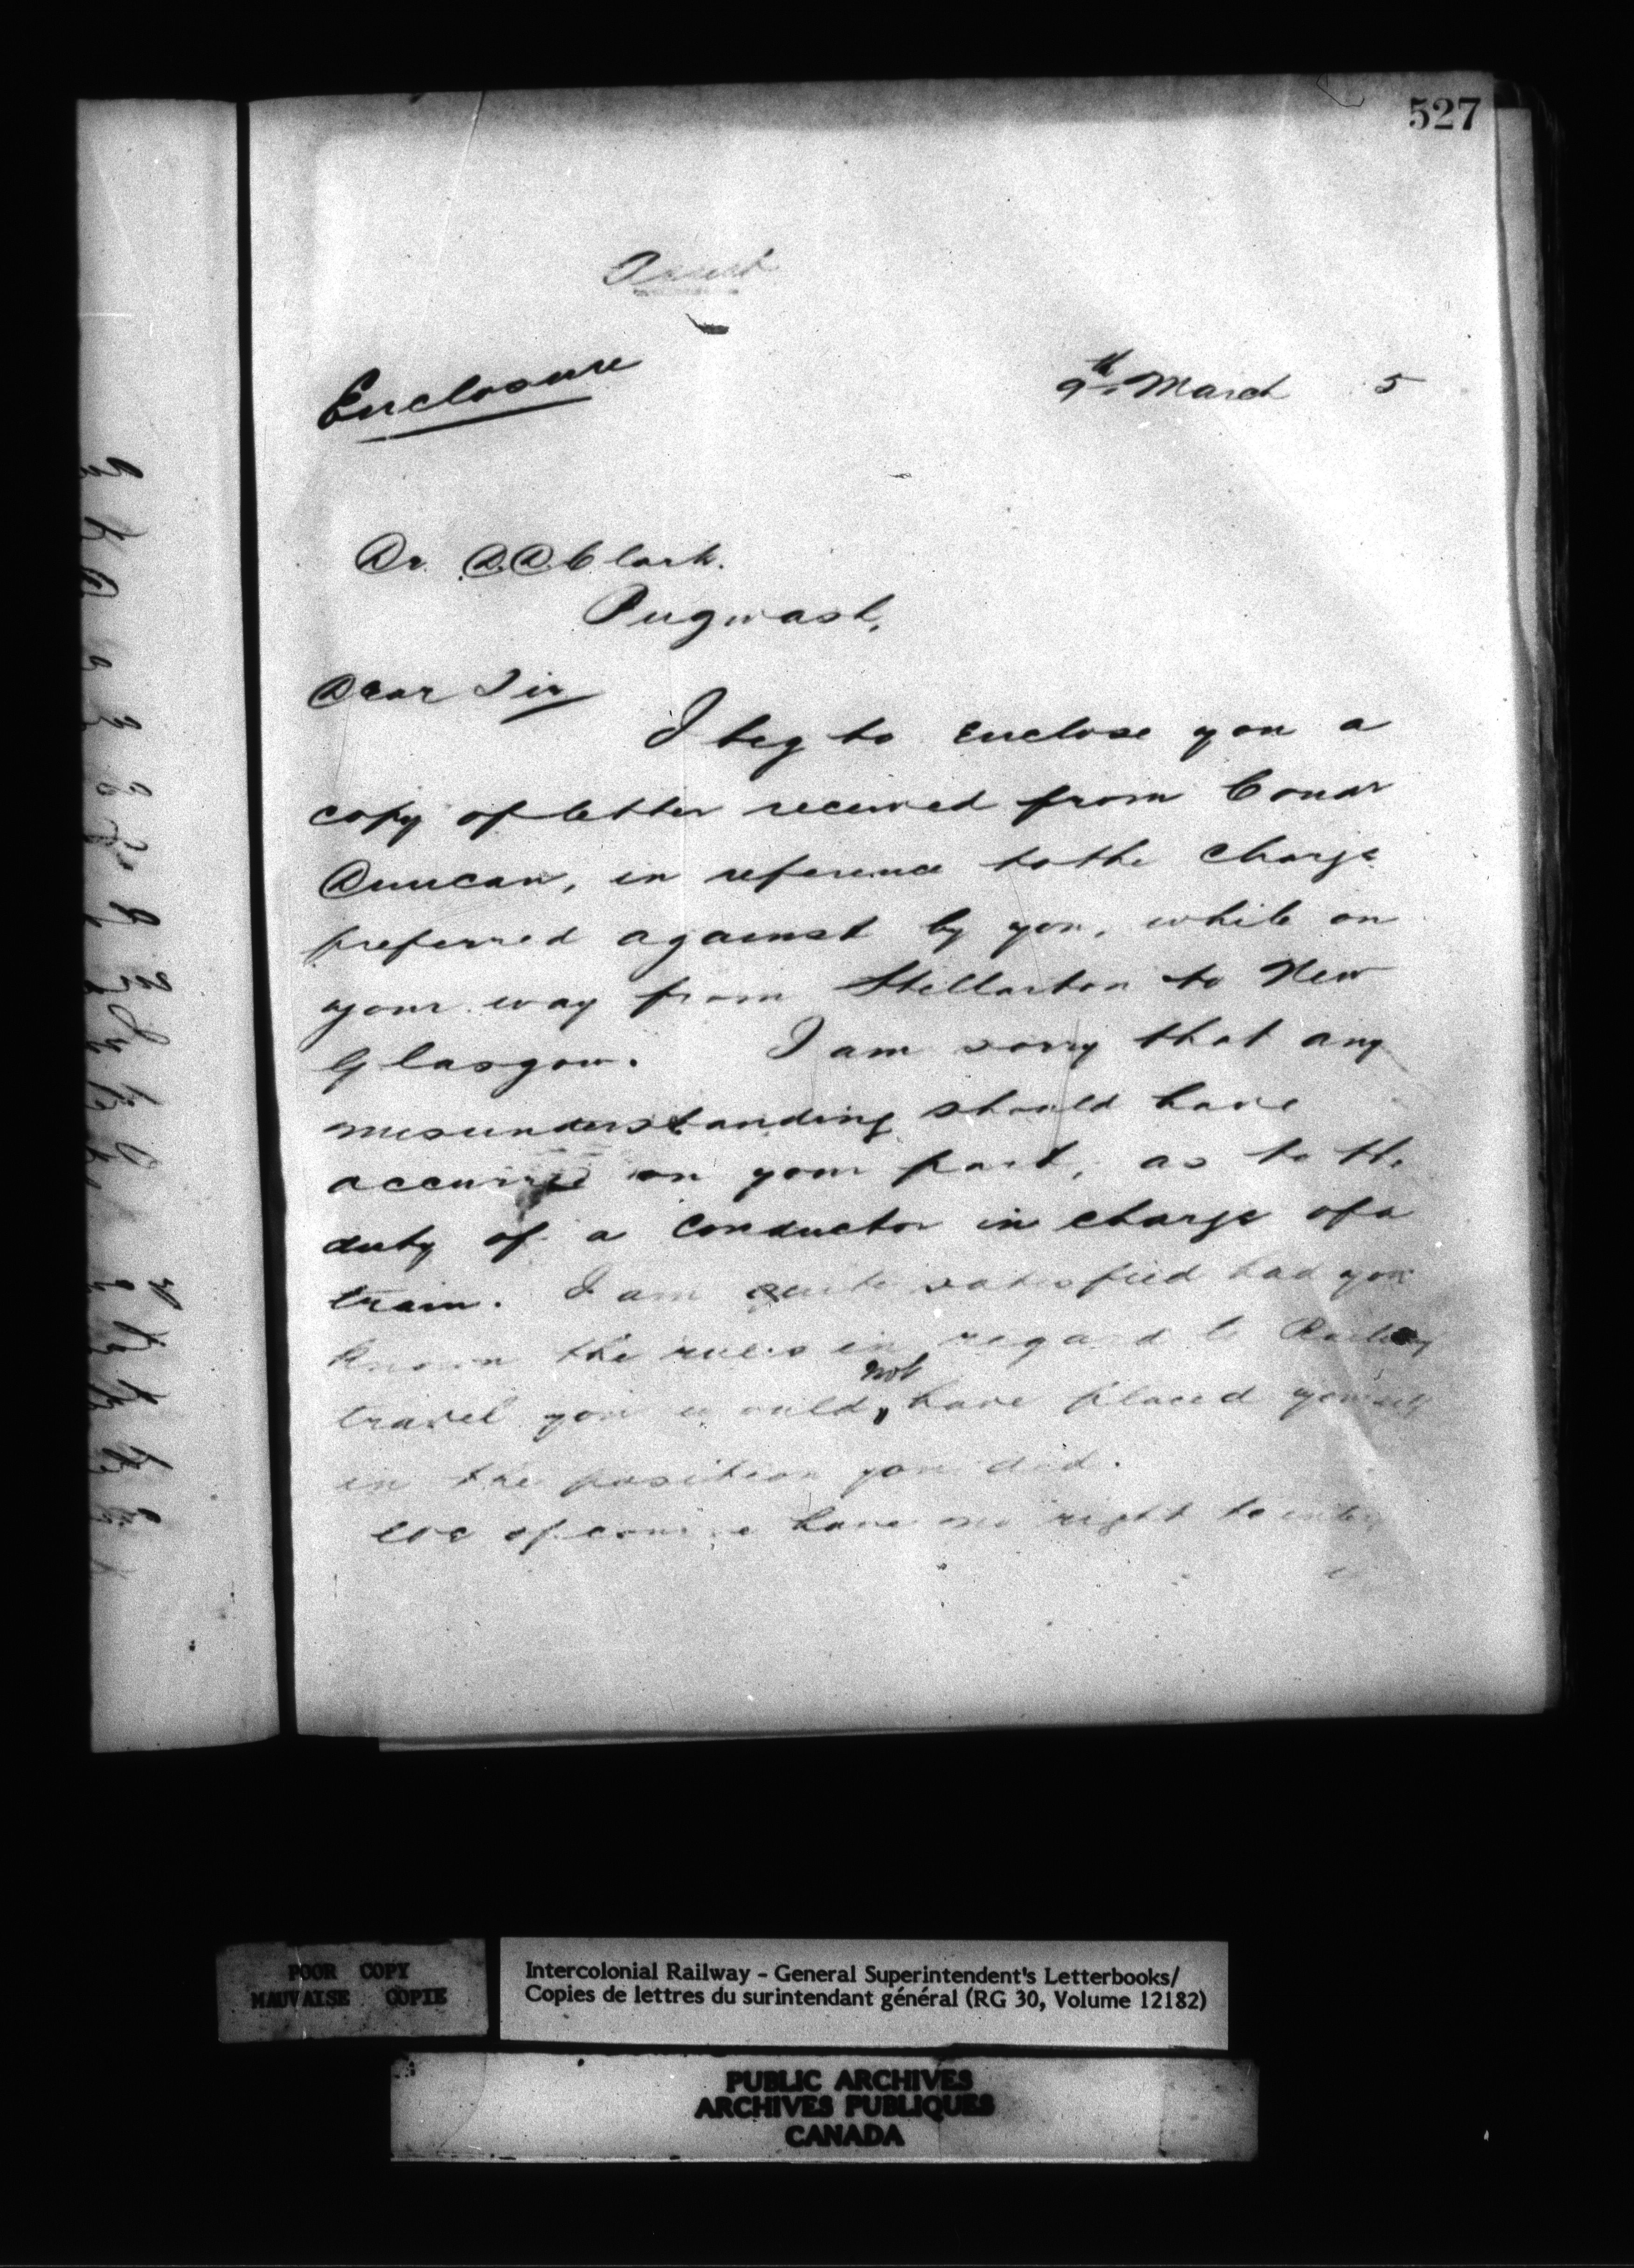 527
Enclosure
9th March 5
Dr. D. D. Clark.
Pugwash,
Dear Sir
I beg to enclose you a
copy of letter received from Condr
Duncan, in reference to the charge
preferred against by you, while on
your way from Stellarton to New
Glasgow. I am sorry that any
misunderstanding should have
occurred on your part, as to the
duty of a conductor in charge of a
train. I am quite satisfied had you
known the rules in regard to Railway
travel you would not have placed yourself
in the position you did.
We of course have no right to
POOR COPY
MAUVAISE COPIE
Intercolonial Railway - General Superintendent's Letterbooks/
Copies de lettres du surintendant général (RG 30, Volume 12182)
PUBLIC ARCHIVES
ARCHIVES PUBLIQUES
CANADA